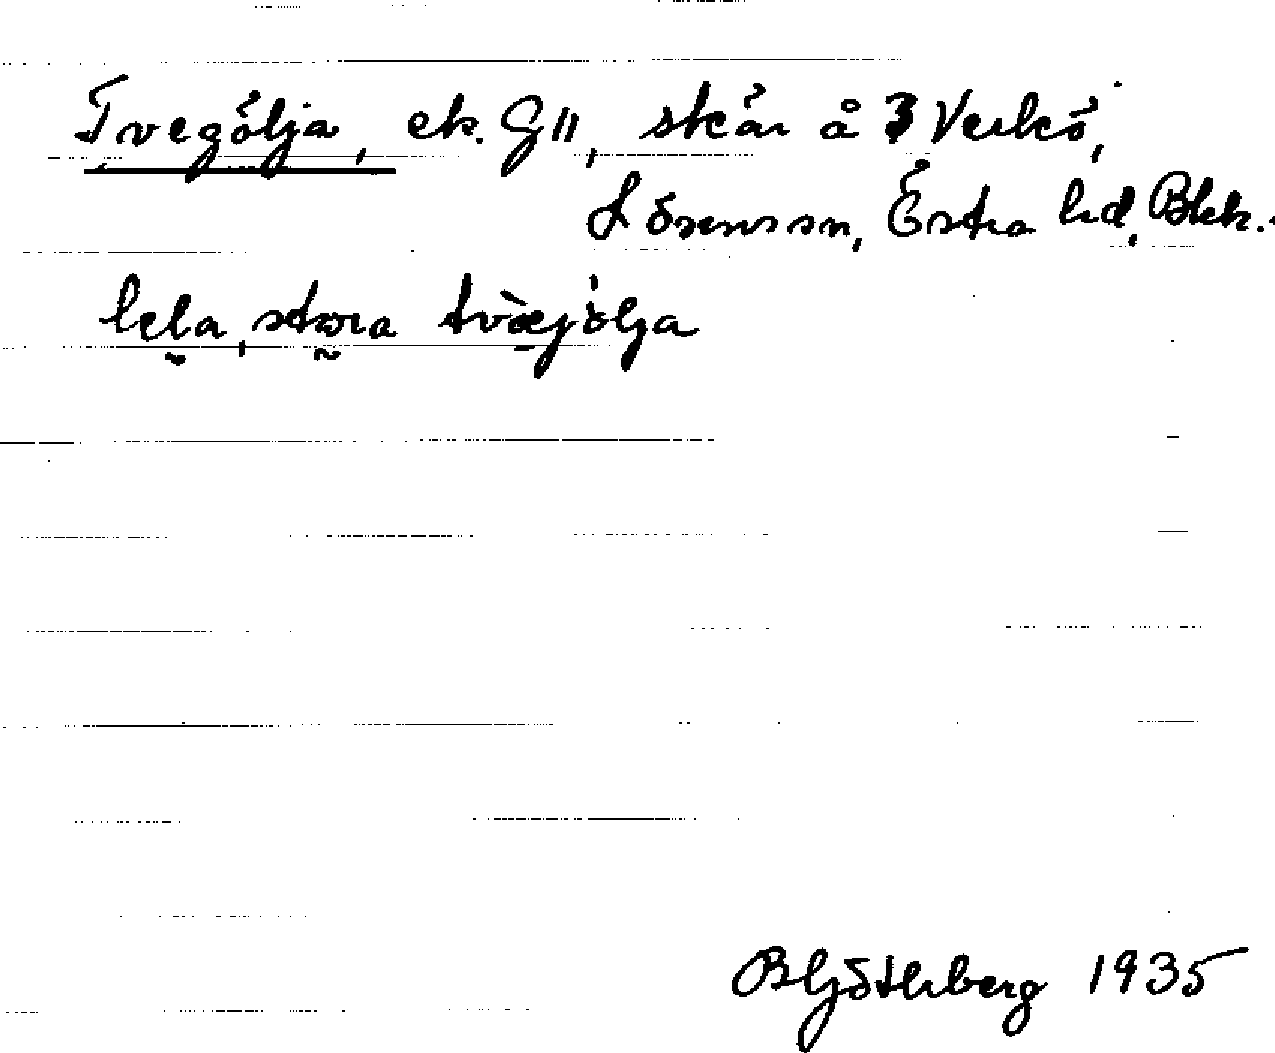 Tvegölja, ek. G11, skär å 3 Verkö,
Lösens sn, Östra hd, Blek.
lela, stora tvæjölja
B Götlberg 1935